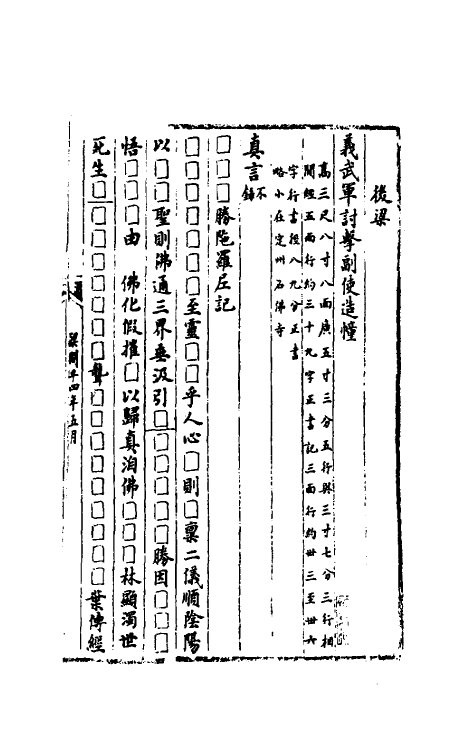 後梁
義武軍討擊副使造幢
高三尺八寸八面廣五寸三分五行與三寸七分三行相
間經五面行約三十九字正書記三面行約卅三至卅六
字行書徑八九分正書
略小在定州石佛寺
真言不
錄
□□□勝陁羅尼記
□□□□□□□□至靈□□乎人心□□則□稟二儀順陰陽
以□□聖則佛通三界垂汲引□□□□□□勝因□□□
悟□□□由 佛化假摧□以歸真洎佛□□□□林顯濁世
死生□□□□□□□聾□□□□□□□□□□葉傳經
梁開平四年五月